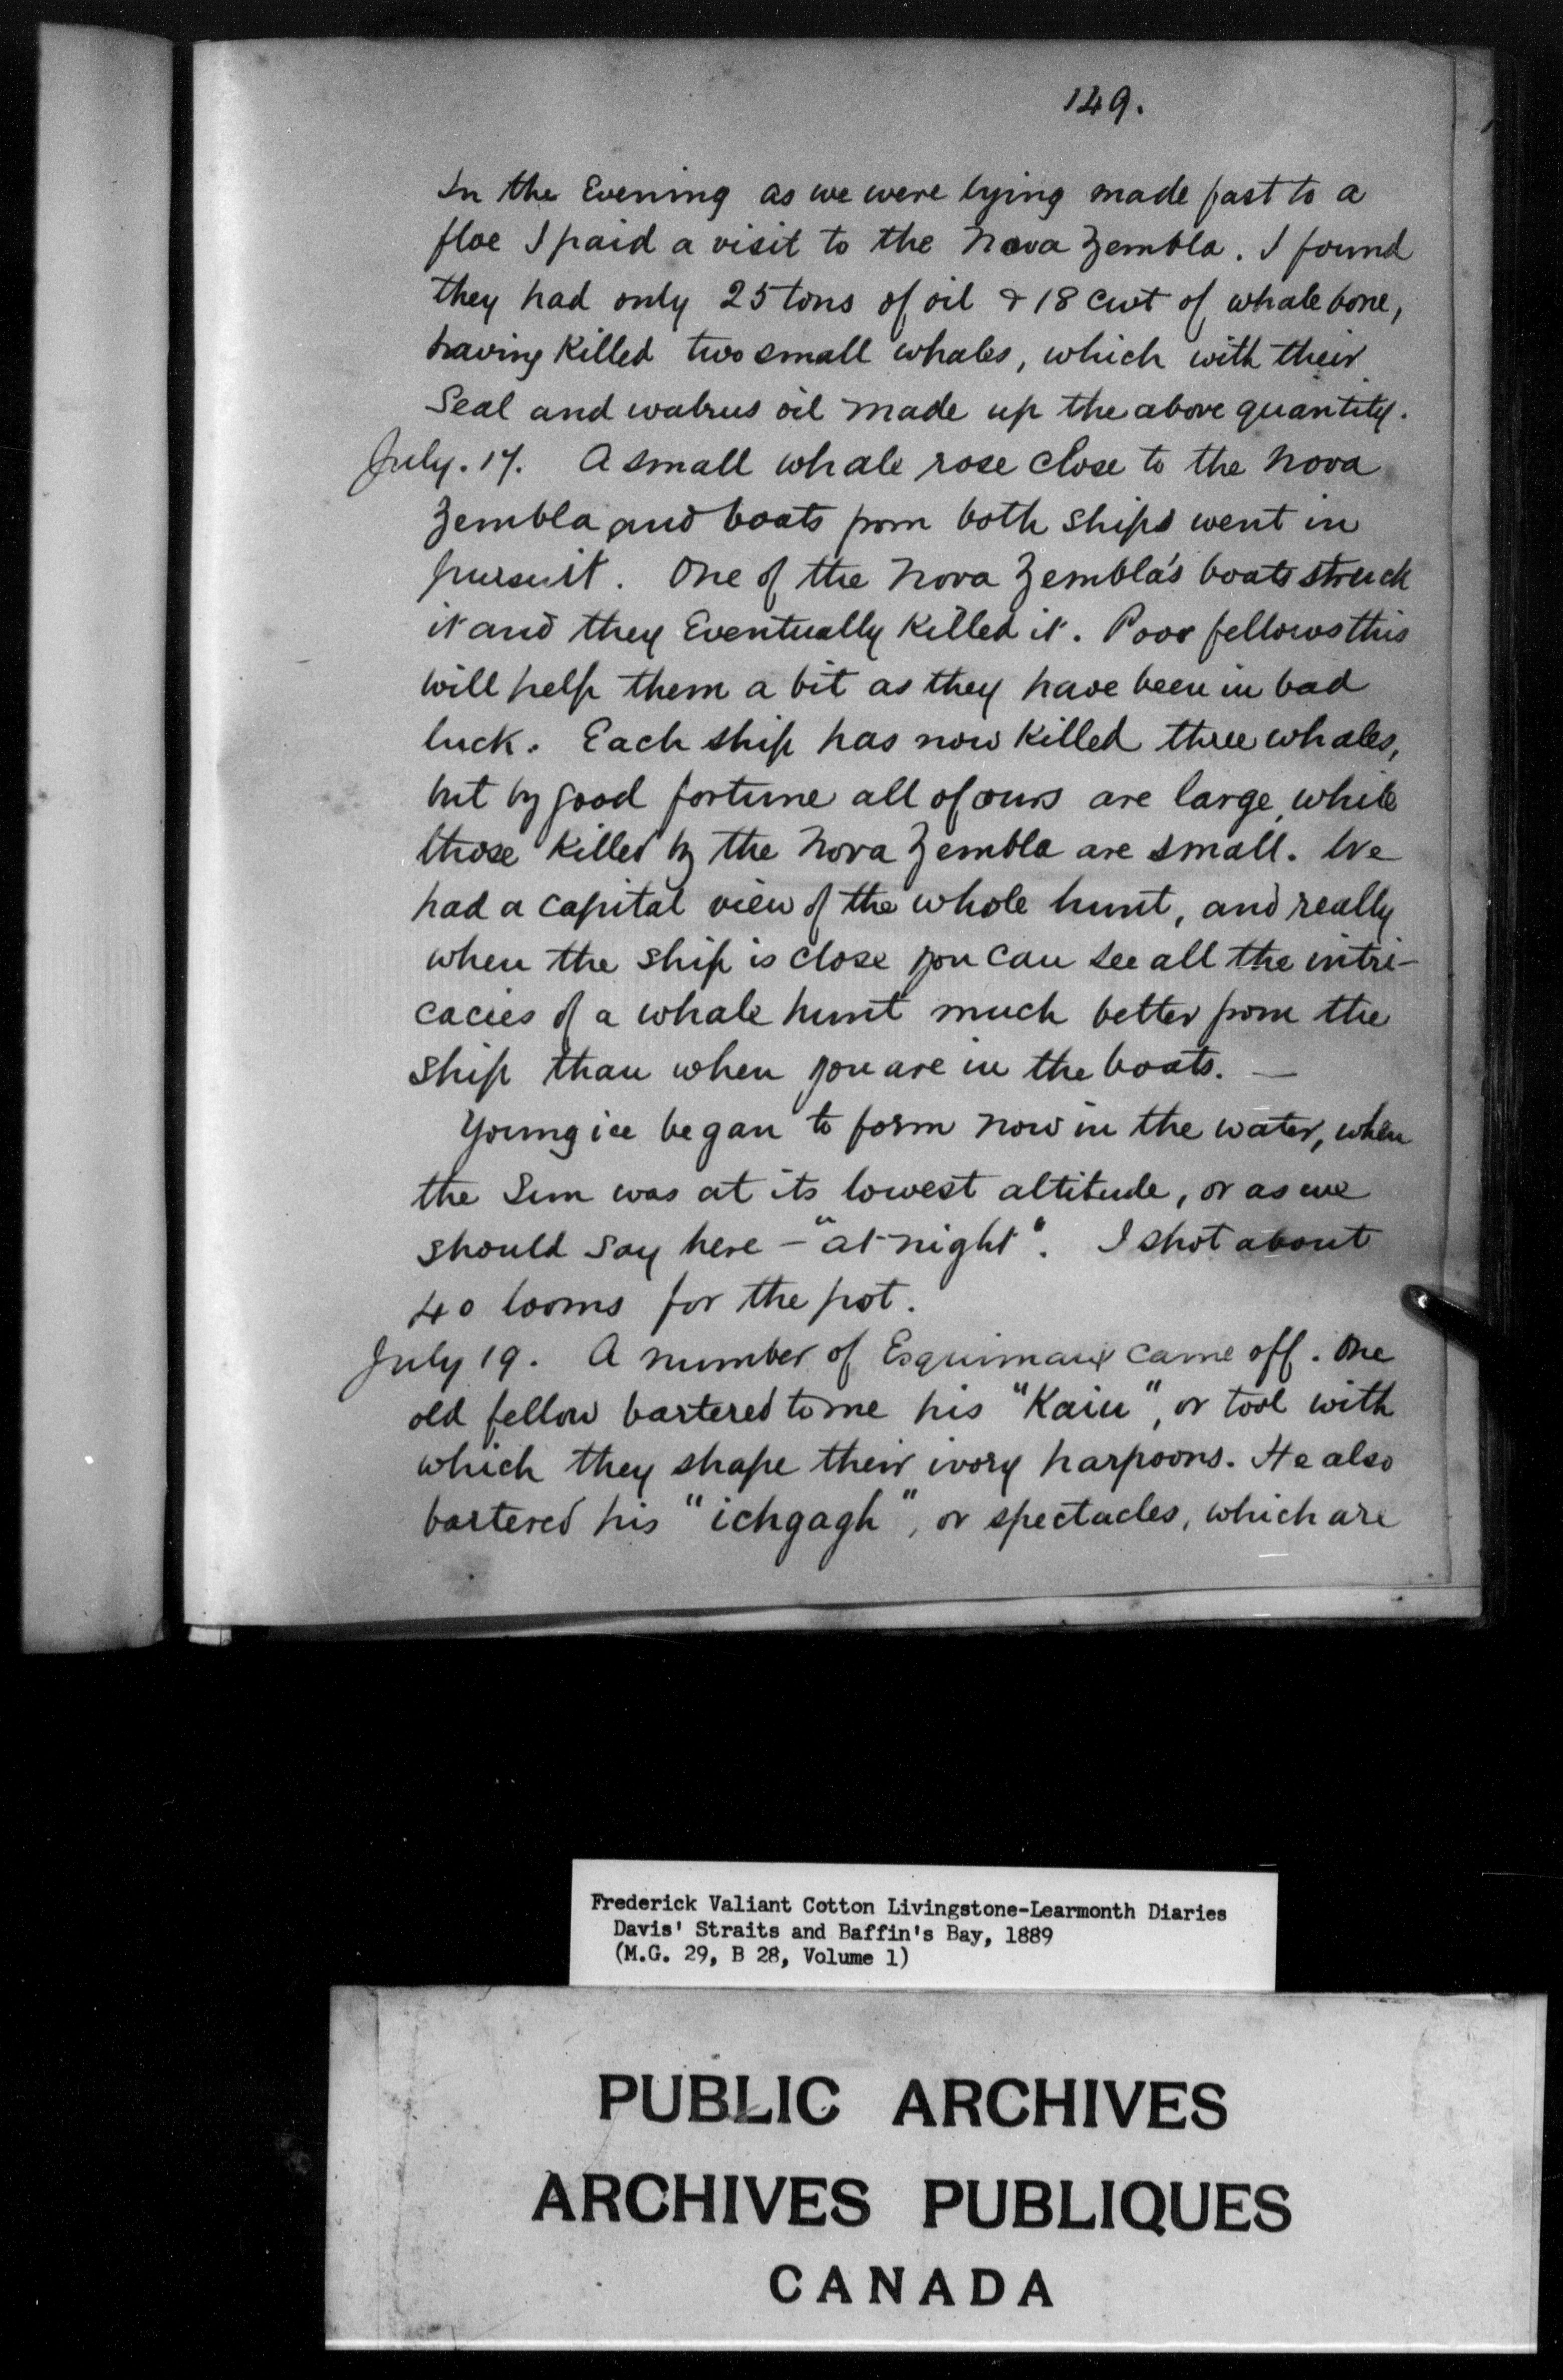 149.
In the Evening as we were lying made fast to a
floe I paid a visit to the Nova Zembla. I found
they had only 25 tons of oil & 18 cwt of whale bone,
having killed two small whales, which with their
Seal and walrus oil made up the above quantity.
July. 17. A small whale rose close to the Nova
Zembla and boats from both ships went in
pursuit. One of the Nova Zembla's boats struck
it and they Eventually killed it. Poor fellows this
will help them a bit as they have been in bad
luck. Each ship has now killed three whales,
but by good fortune all of ours are large, while
those killed by the Nova Zembla are small. We
had a capital view of the whole hunt, and really
when the ship is close you can see all the intri-
cacies of a whale hunt much better from the
ship than when you are in the boats. —
Young ice began to form now in the water, when
the Sun was at its lowest altitude, or as we
should say here - "at night". I shot about
40 looms for the pot.
July 19. A number of Esquimaux came off. One
old fellow bartered to me his "Kaiu", or tool with
which they shape their ivory harpoons. He also
bartered his "ichgagh", or spectacles, which are
Frederick Valiant Cotton Livingstone-Learmonth Diaries
Davis' Straits and Baffin's Bay, 1889
(M.G. 29, B 28, Volume 1)
PUBLIC ARCHIVES
ARCHIVES PUBLIQUES
CANADA